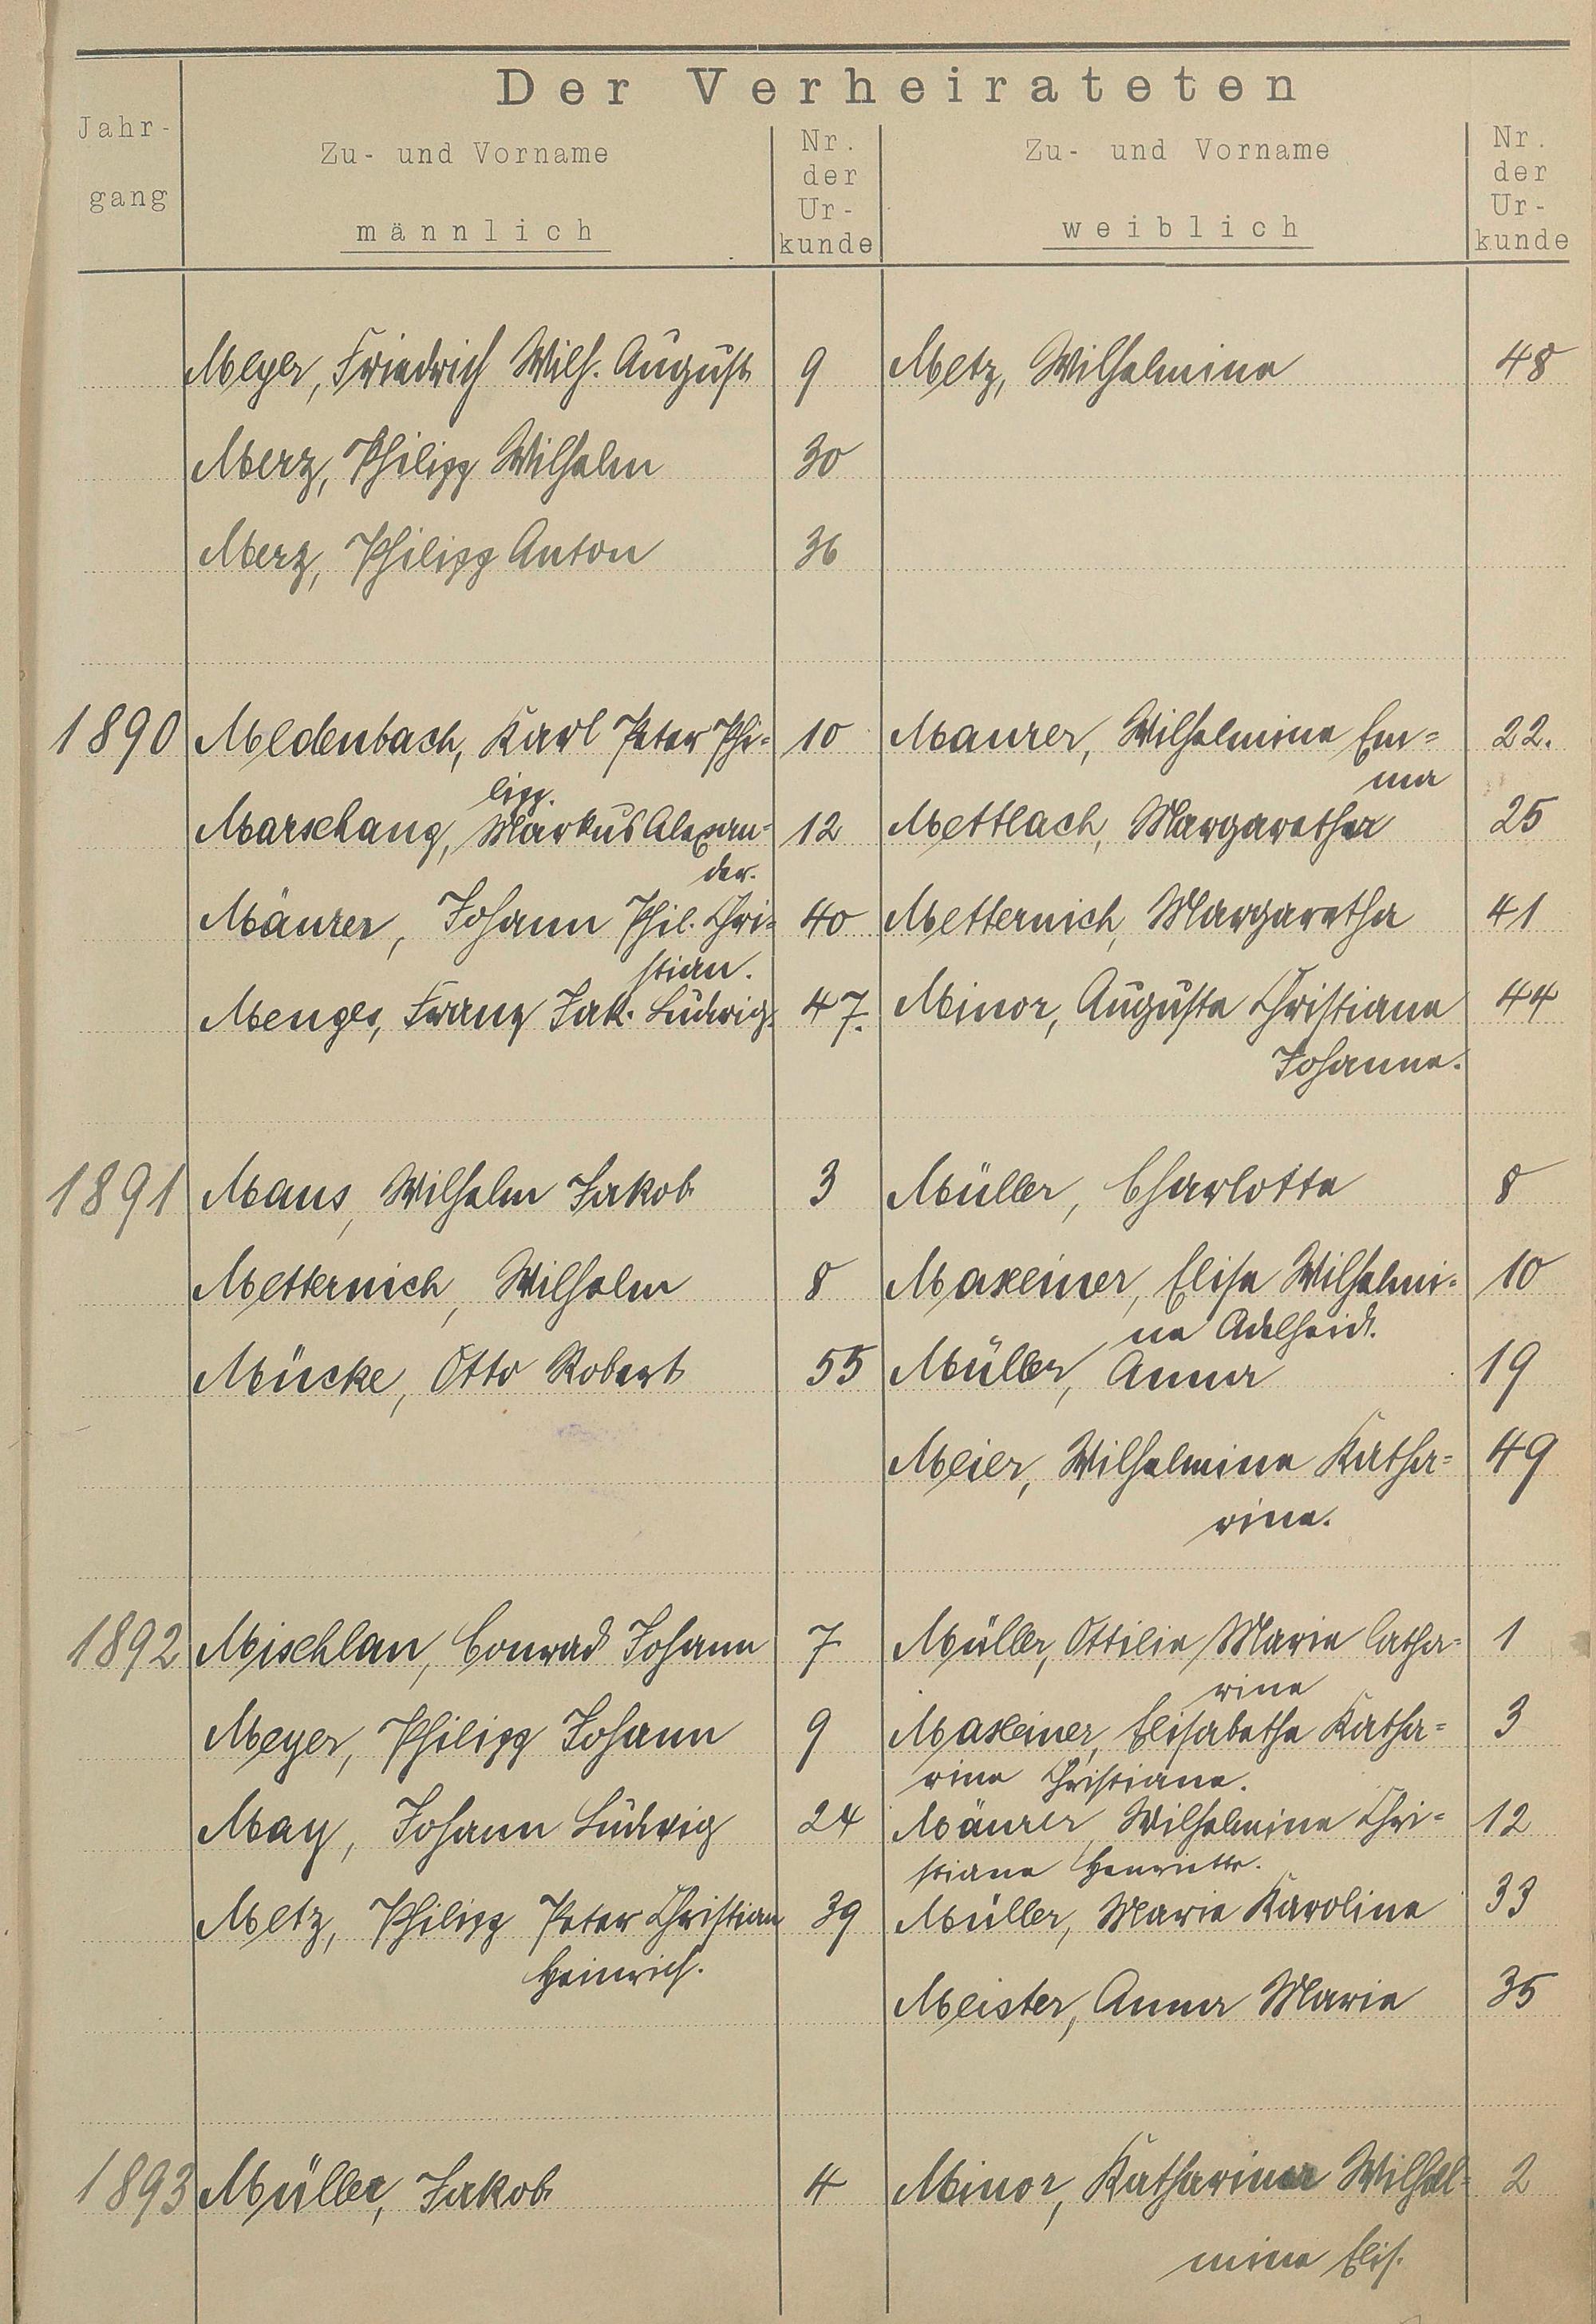 Der Verheirateten
Jahr-
gang
Zu- und Vorname
männlich
Nr.
der
Ur-
kunde
Zu- und Vorname
weiblich
Nr.
der
Ur-
kunde
Meyer, Friedrich Wilh. August 9 Metz, Wilhelmine 48
Merz, Philipp Wilhelm 30
Merz, Philipp Anton 36
1890 Medenbach, Karl Peter Phi= 10 Maurer, Wilhelmine Em= 22.
lipp. ma
Marschang, Markus Alexan= 12 Mettlach, Margaretha 25
der.
Mäurer, Johann Phil. Chri= 40 Metternich, Margaretha 41
stian.
Menges, Franz Jak. Ludwig. 47. Minor, Auguste Christiane 44
Johanne.
1891 Maus, Wilhelm Jakob 3 Müller, Charlotte 8
Metternich, Wilhelm 8 Maxeiner, Elise Wilhelmi= 10
ne Adelheid.
Mücke, Otto Robert 55 Müller, Anna 19
Meier, Wilhelmine Katha= 49
rine.
1892 Mischlau, Conrad Johann 7 Müller, Ottilie Marie Catha= 1
rine
Meyer, Philipp Johann 9 Maxeiner, Elisabethe Katha= 3
rine Christiane.
May, Johann Ludwig 24 Mäurer, Wilhelmine Chri= 12
stiane Henriette.
Metz, Philipp Peter Christian 39 Müller, Marie Karoline 33
Heinrich.
Meister, Anna Marie 35
1893 Müller, Jakob 4 Minor, Katharina Wilhel= 2
mine Elis.